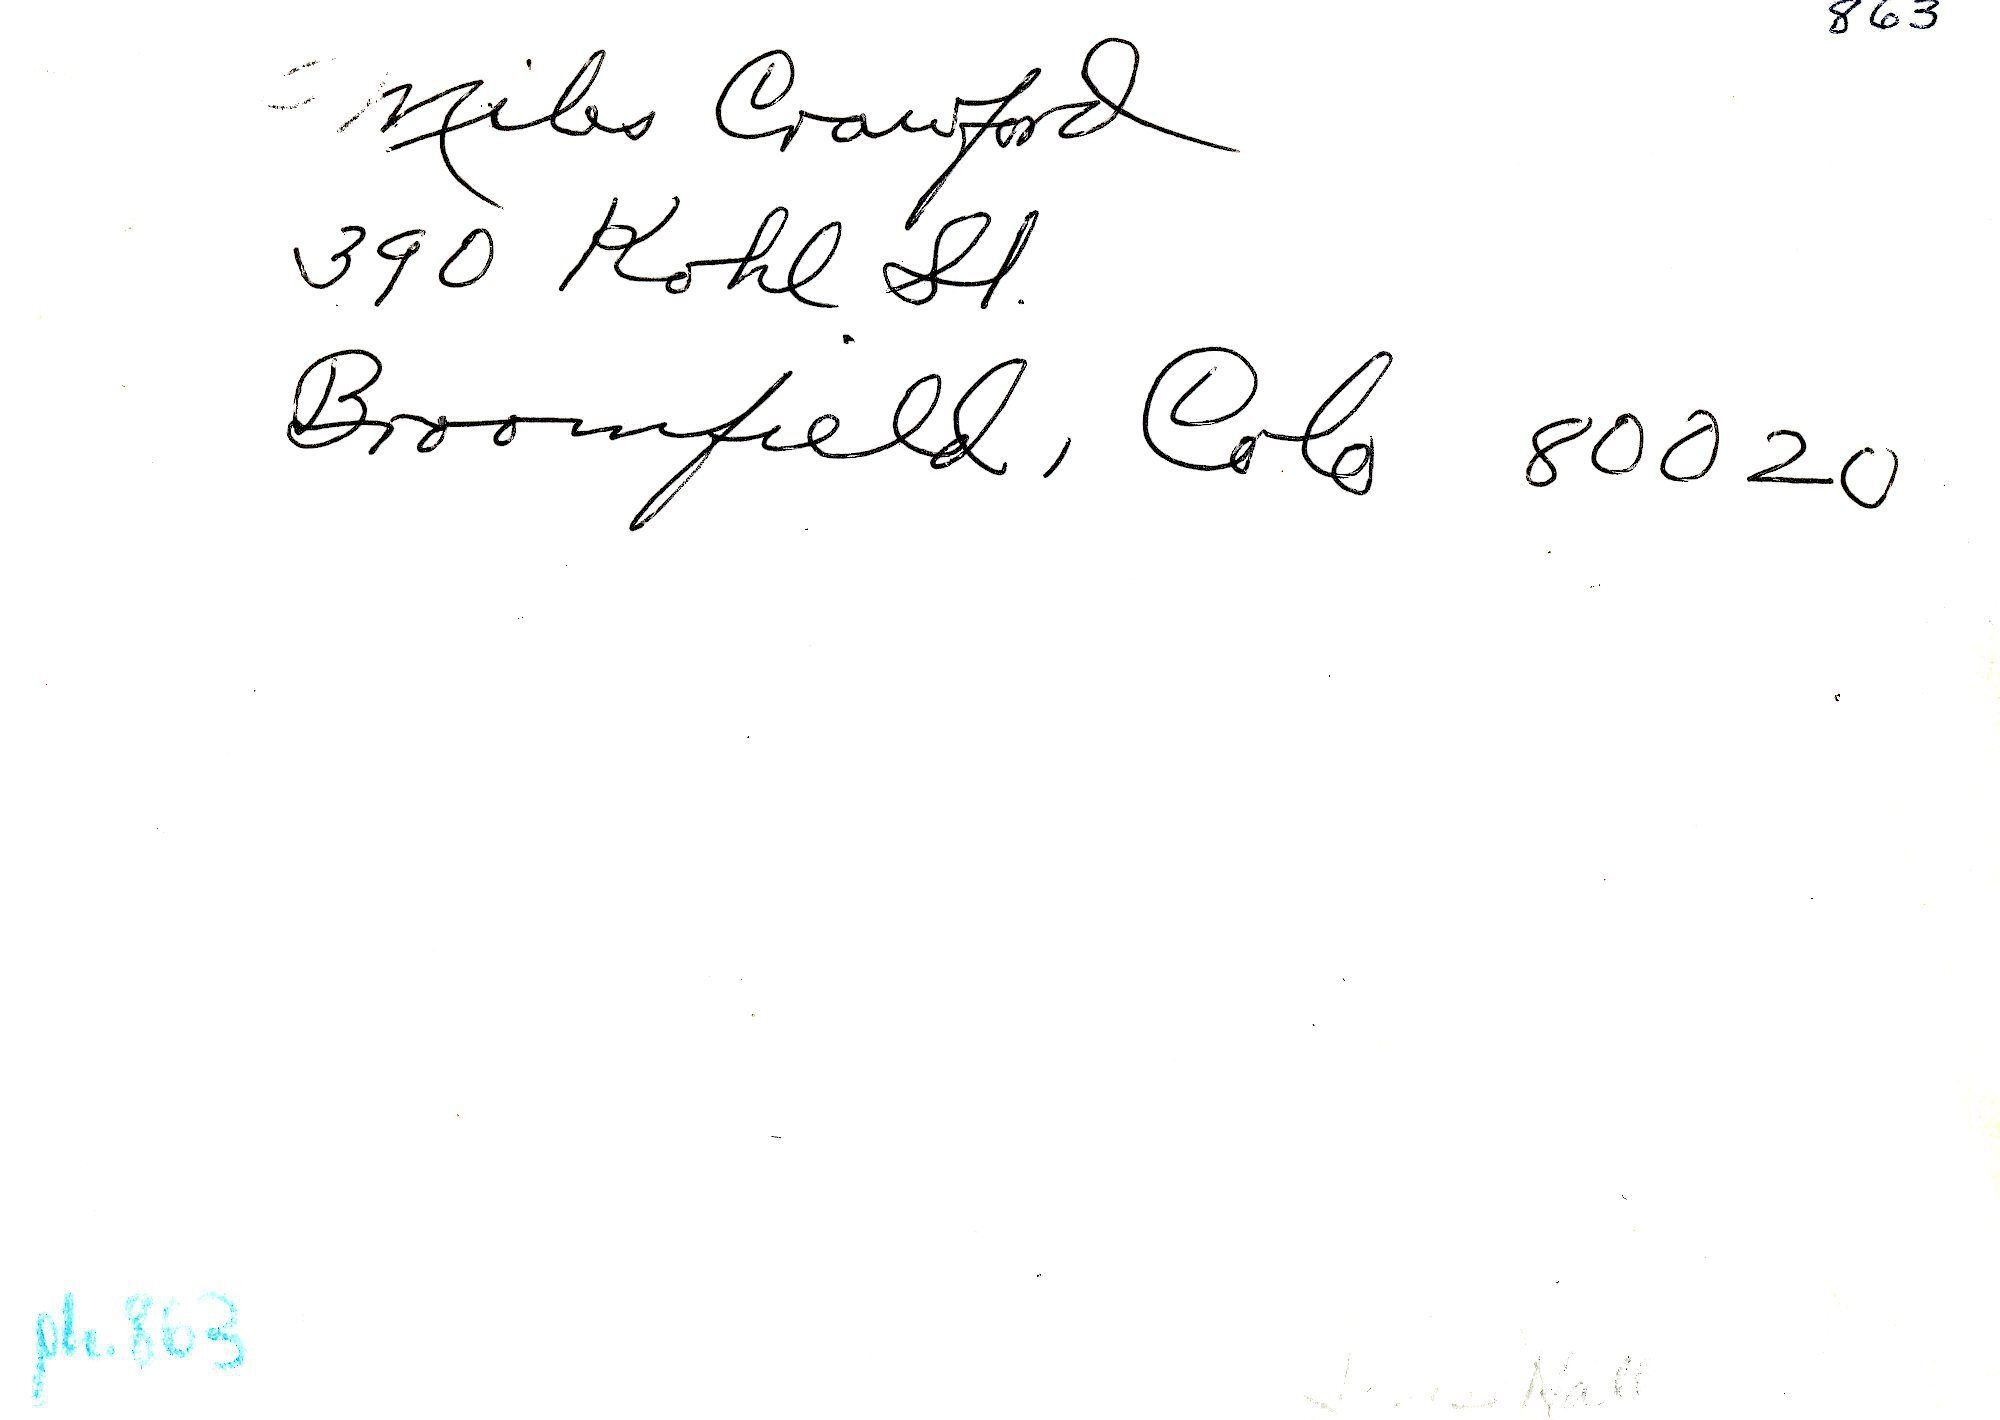 863
Miles Crawford
390 Kohl St.
Broomfield, Colo 80020
ph. 863
Hall